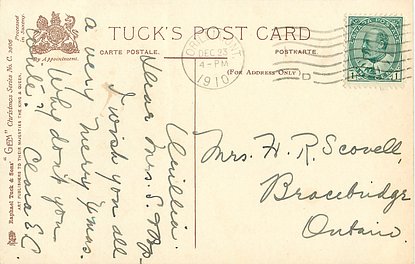 TUCK'S POST CARD
CARTE POSTALE.
POSTKARTE.
(FOR ADDRESS ONLY)
By Appointment.
Processed in Saxony.
Raphael Tuck & Sons' "GEM" Christmas Series No. C. 2606
ART PUBLISHERS TO THEIR MAJESTIES THE KING & QUEEN.
DEC 23
4-PM
1910
1 1
Orillia
Dear Mrs. S
I wish you all
a very merry Xmas.
Why don't you
write? Clara E C.
Mrs. H. R. Scovell,
Bracebridge
Ontario.